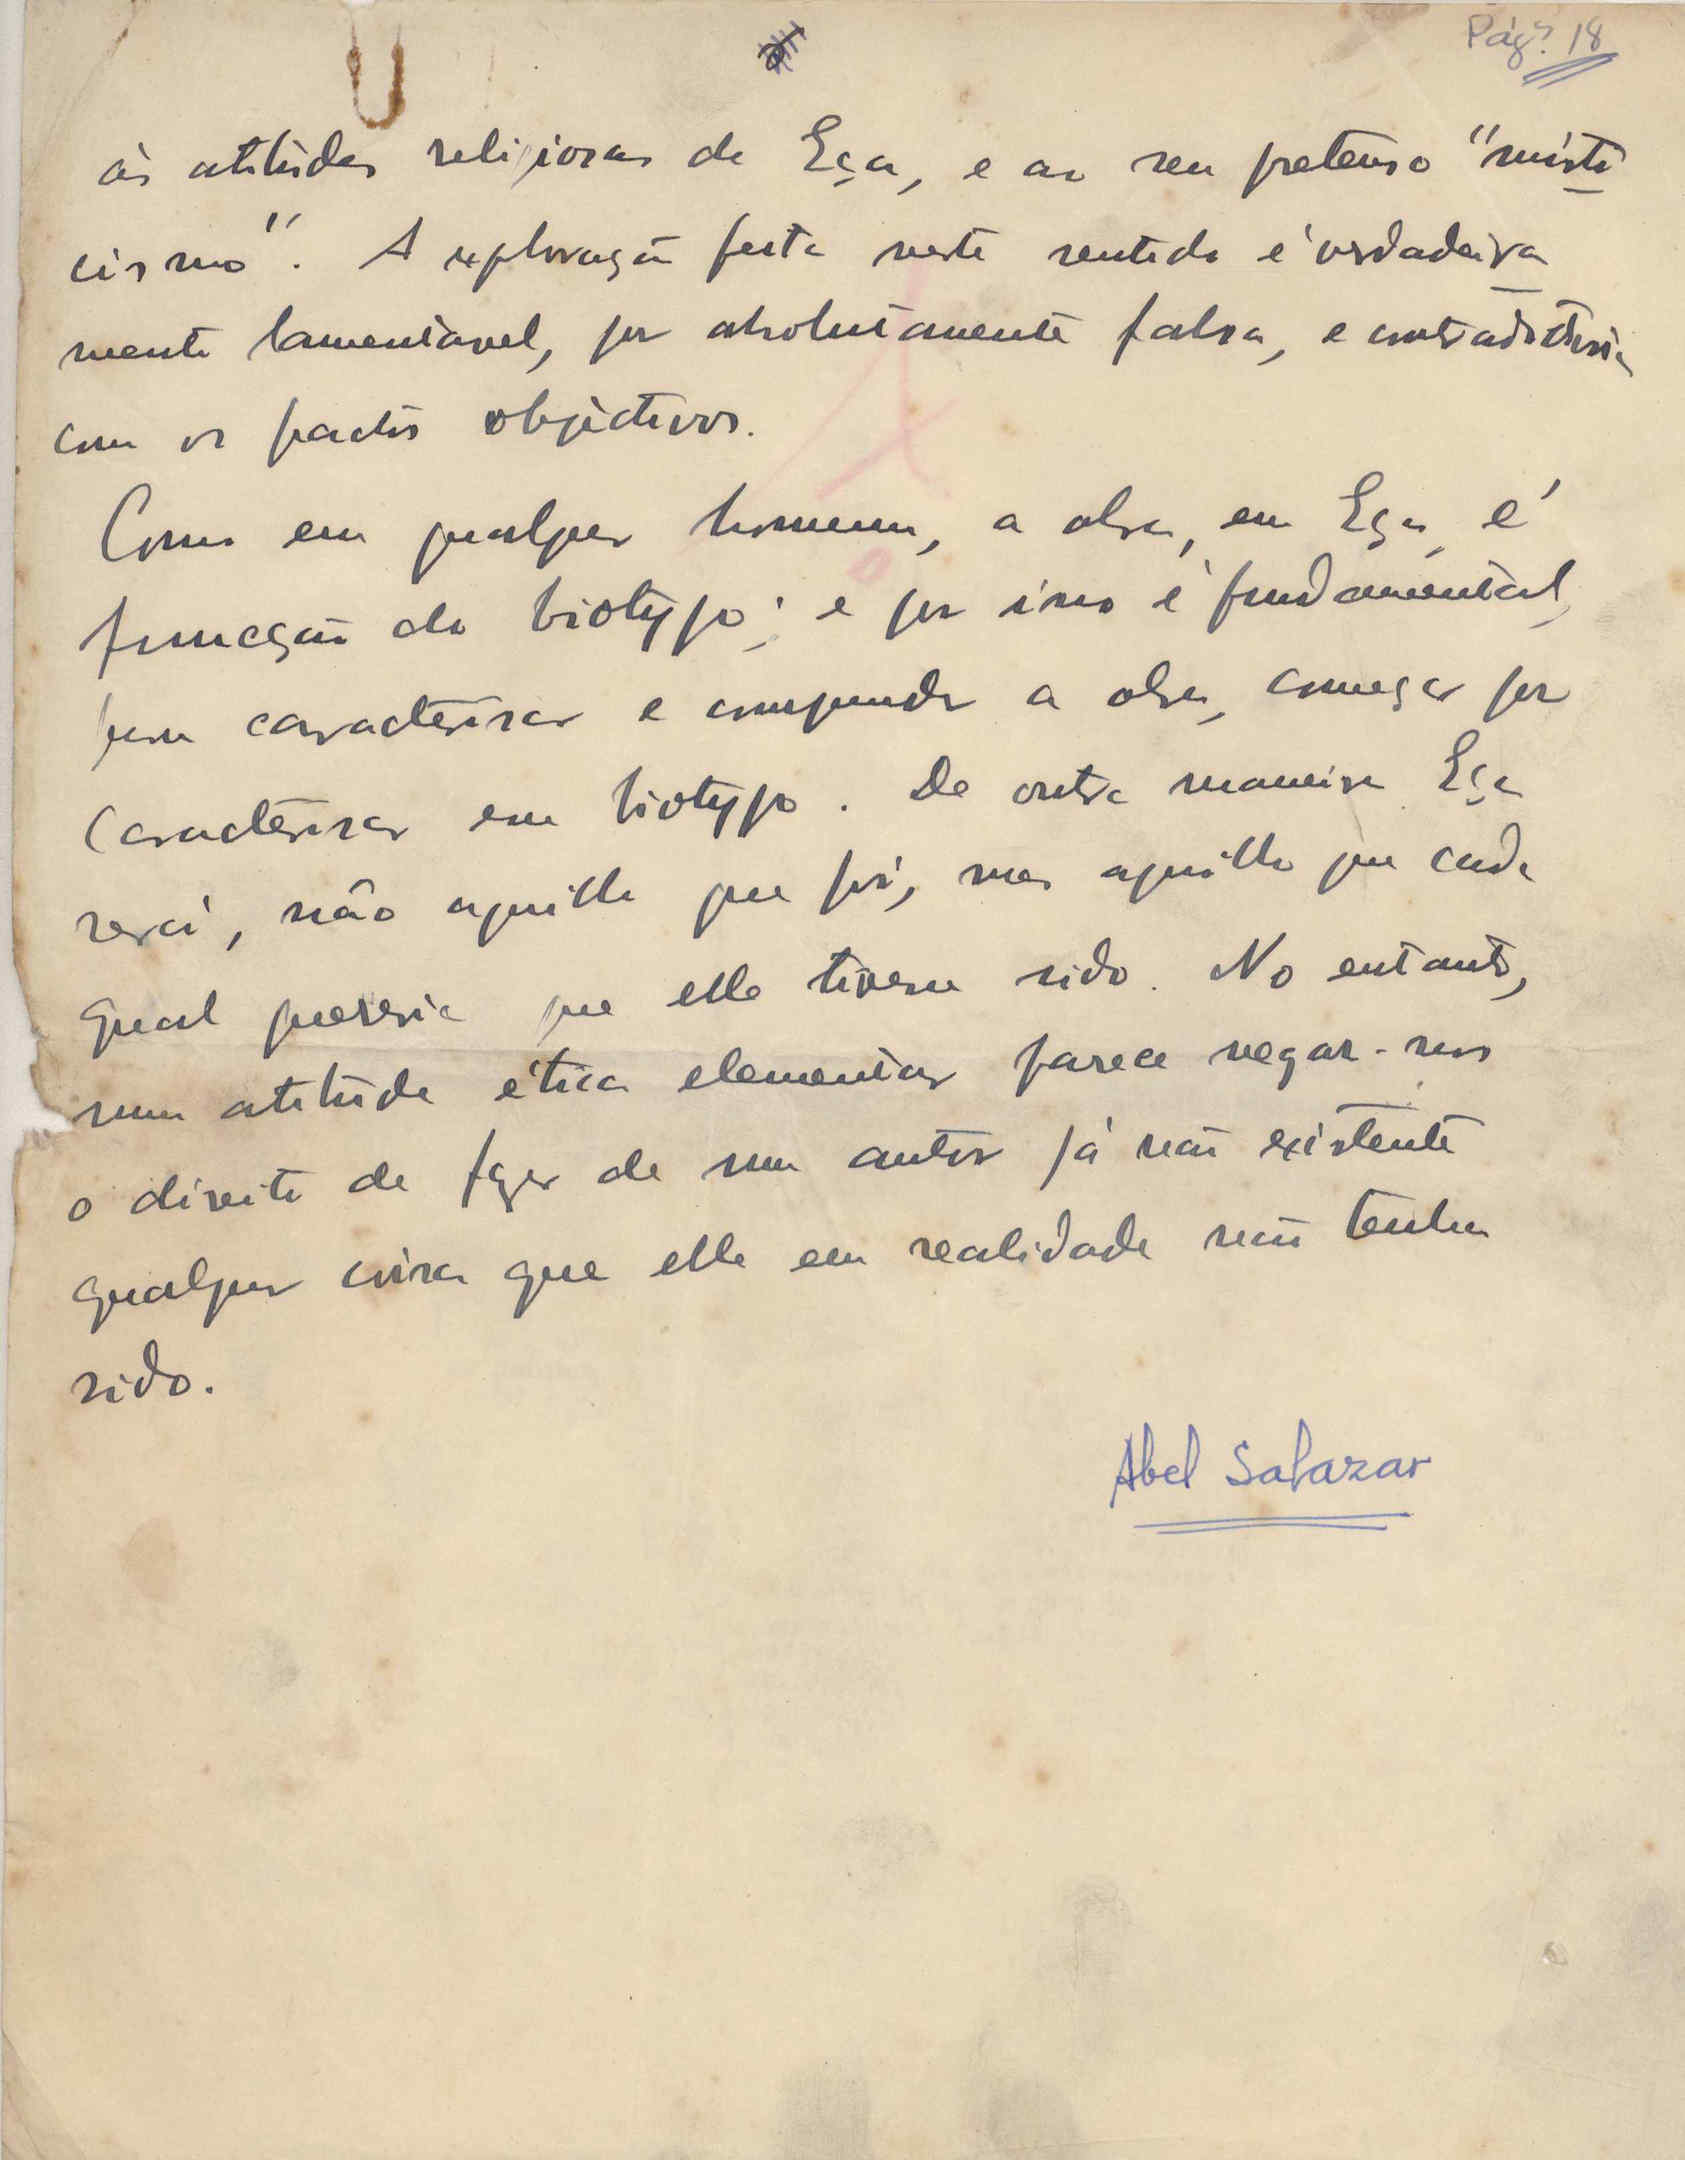 Pág.ª 18
às atitudes religiosas de Eça, e ao seu pretenso "misti
cismo". A exploração feita neste sentido é verdadeira
mente lamentavel, por absolutamente falsa, e contradictoria
com os factos objectivos.
Como em qualquer homem, a obra, em Eça, é
funcção do biotypo; e por isso é fundamental,
para caracterisar e comprender a obra, começar por
caracterisar em biotypo. De outra maneira Eça
será, não aquillo que foi, mas aquillo que cada
qual quereria que elle tivesse sido. No entanto,
uma atitude ética elementar parece negar-nos
o direito de fazer de um autor já não existente
qualquer coisa que elle em realidade não tenha
sido.
Abel Salazar